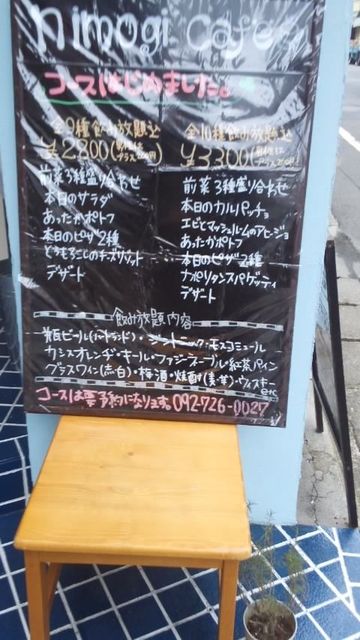 nimogi cafe
コースはじめました。
全9種飲み放題込
¥2,800(男性はプラス200円)
前菜3種盛り合わせ
本日のサラダ
あったかポトフ
本日のピザ2種
とうもろこしのチーズリゾット
デザート
全10種飲み放題込
¥3,300(男性はプラス200円)
前菜3種盛り合わせ
本日のカルパッチョ
エビとマッシュルームのアヒージョ
あったかポトフ
本日のピザ2種
ナポリタンスパゲッティ
デザート
飲み放題内容
瓶ビール(ハートランド)・ジントニック・モスコミュール
カシスオレンジ・キール・ファジーネーブル・紅茶パイン
グラスワイン(赤・白)・梅酒・焼酎(麦・芋)・ウィスキー
etc
コースは要予約になります。092-726-0027